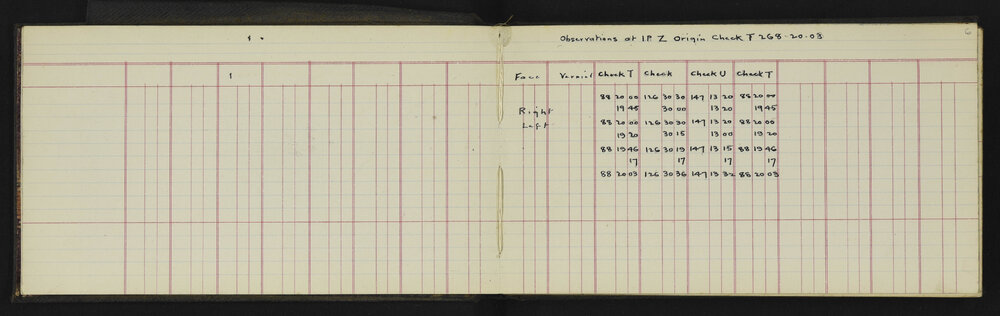 Observations at I.P. Z Origin Check T 268.20.03
6
Face Vernier Check T Check Check U Check T
88 20 00 126 30 30 147 13 20 88 20 00
Right 19 45 30 00 13 20 19 45
Left 88 20 00 126 30 30 147 13 20 88 20 00
19 20 30 15 13 00 19 20
88 19 46 126 30 19 147 13 15 88 19 46
17 17 17 17
88 20 03 126 30 36 147 13 32 88 20 03